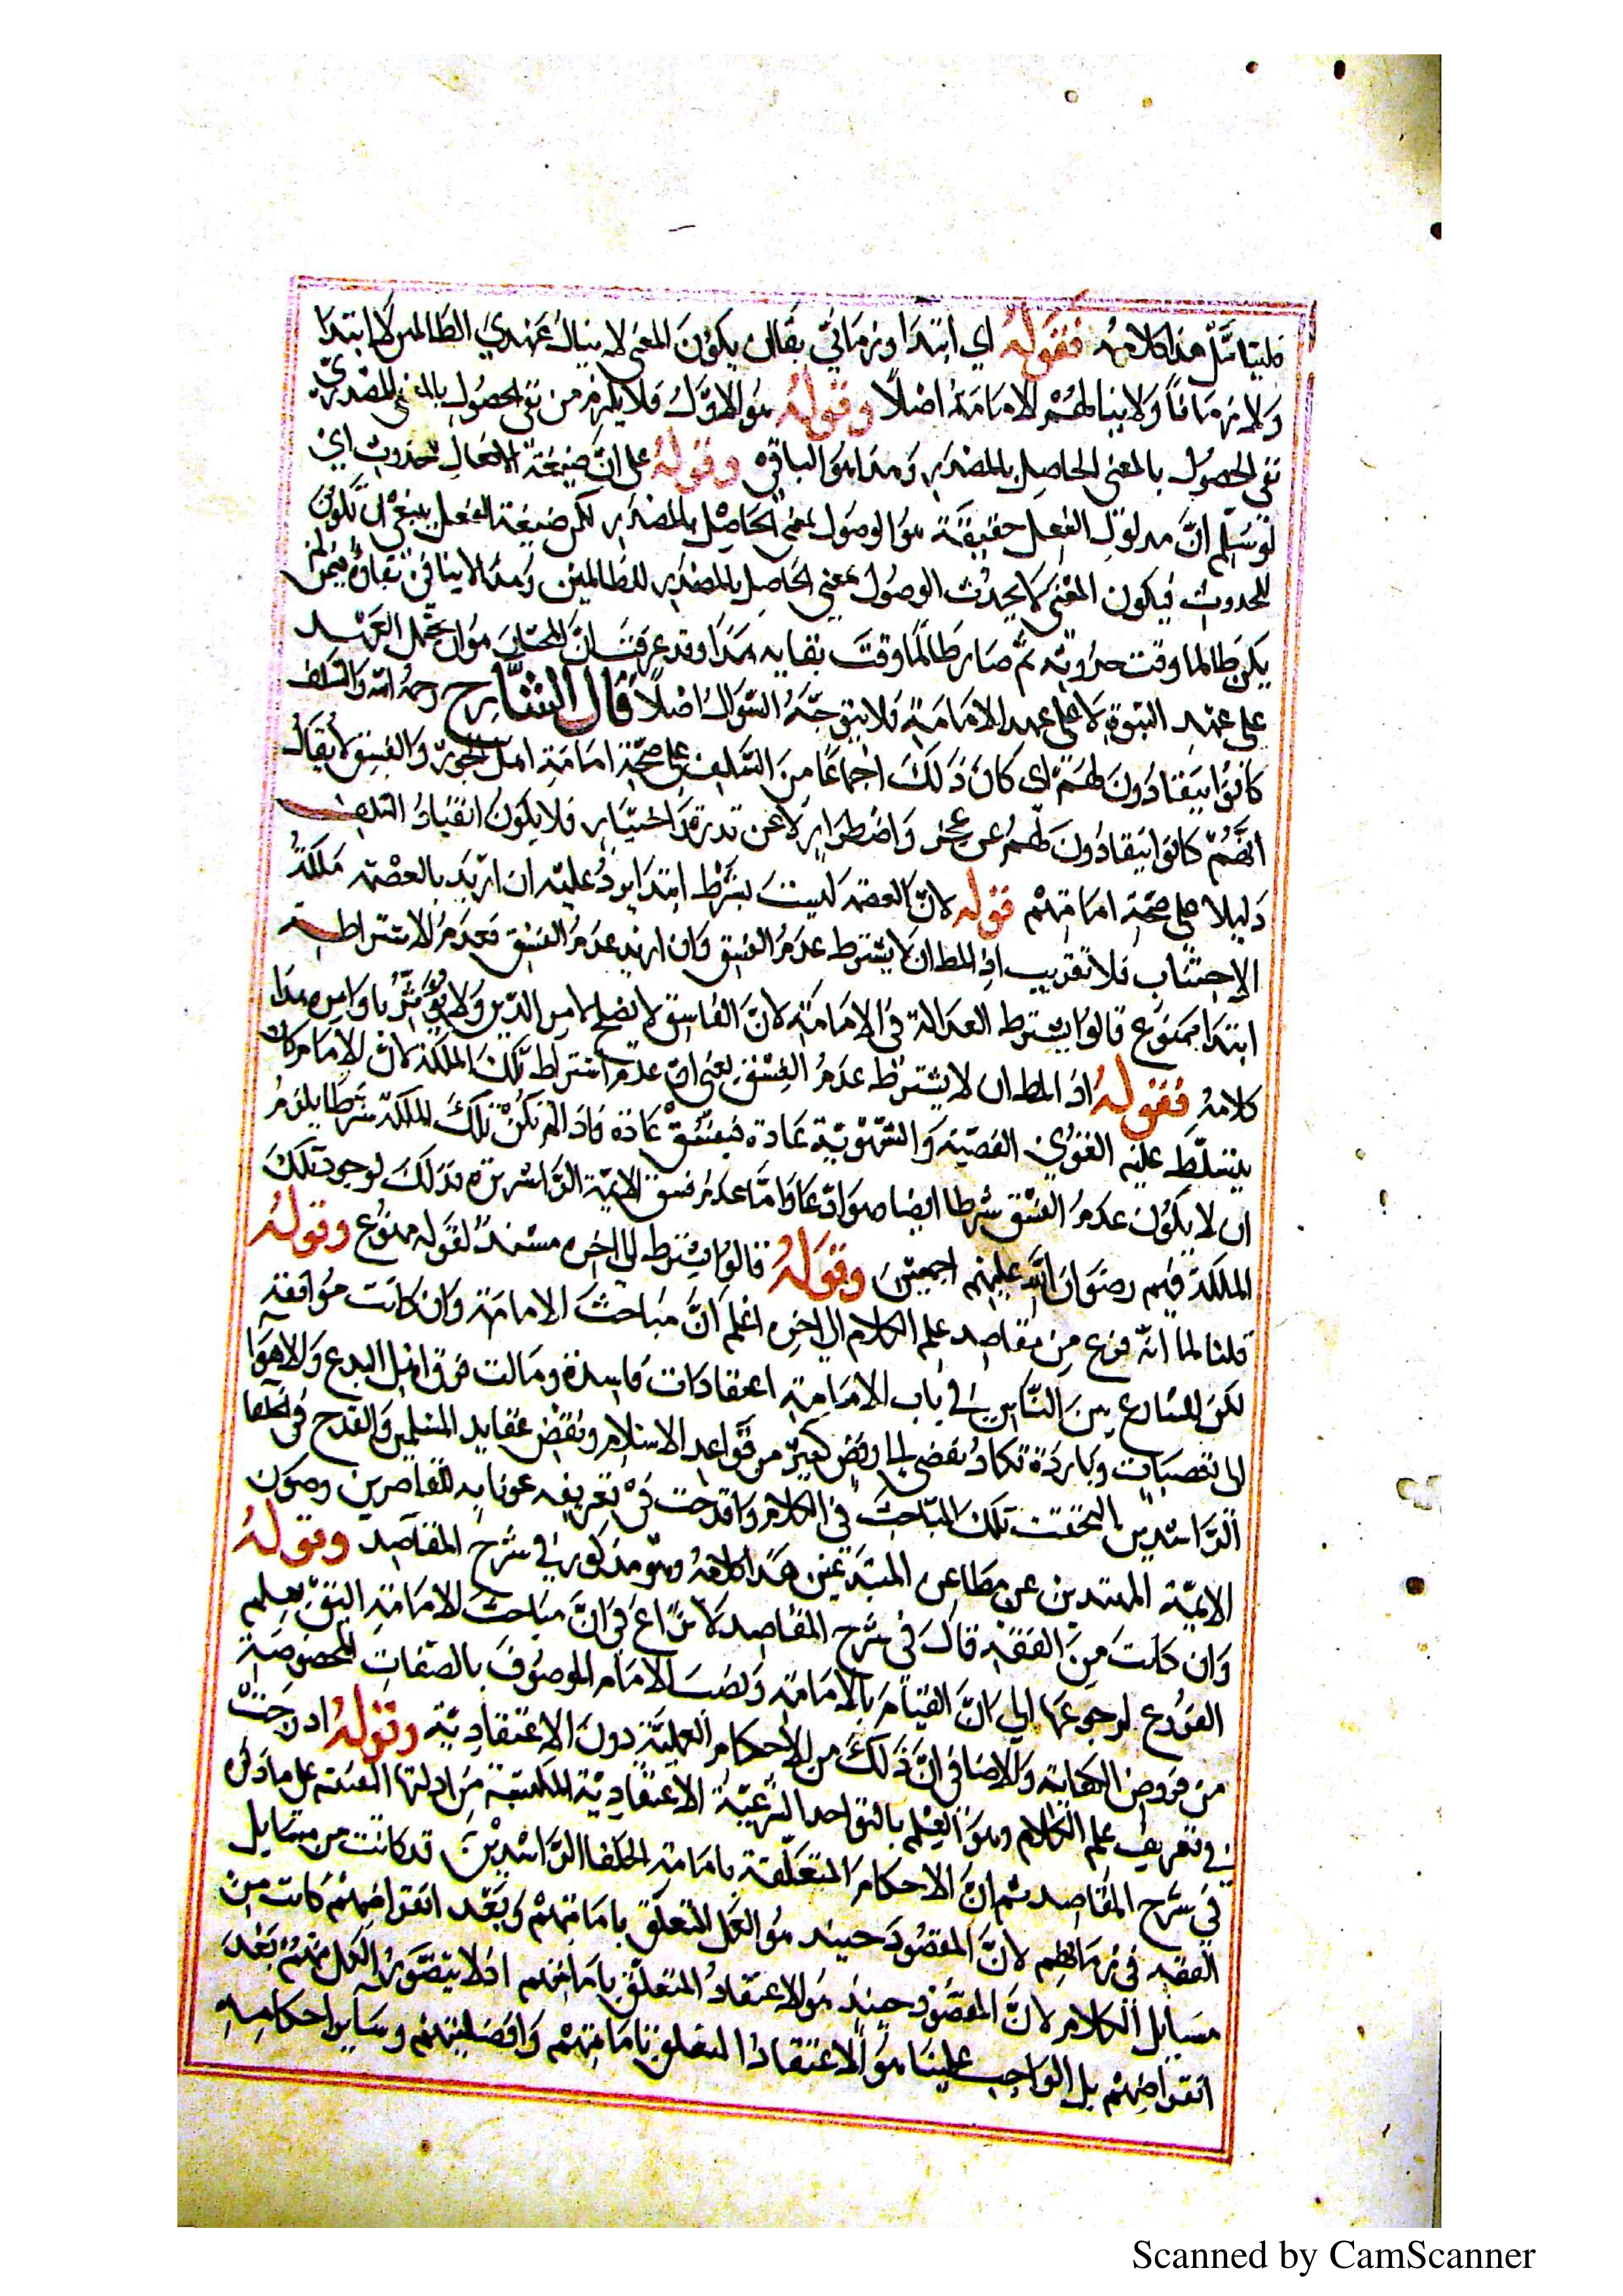 فليتامل هذا كلامه فقوله اي ابتدا وزماني بقال يكون المعنى لا ينال عهدي الظالمين لا ابتدا
ولا زمانا ولا ينالهم الامامة اصلا وقوله هو الاول فلا يلزم من نفي الحصول بالمعنى المصدري
نفي الحصول بالمعنى الحاصل بالمصدر وهذا هو الباقي وقوله على ان صيغة الافعال للحدوث اي
لو سلم ان مدلول الفعل حقيقة هو الوصول بمعنى الحاصل بالمصدر لكن صيغة الفعل ينبغي ان تكون
للحدوث فيكون المعنى لا يحدث الوصول بمعنى الحاصل بالمصدر للظالمين وهذا لا ينافي بقاؤه فيمن لم
يكن ظالما وقت حدوثه ثم صار ظالما وقت بقايه هذا وقد عرفت ان المختار هو ان يحمل العهد
على عهد النبوة لا على عهد الامامة فلا يتوجه السوال اصلا قال الشارح رحمه الله والسلف
كانوا ينقادون لهم اي كان ذلك اجماعا من السلف على صحة امامة اهل الجور والفسق لا يقال
انهم كانوا ينقادون لهم عن عجز واضطرار لا عن قدرة واختيار فلا يكون انقياد السلف
دليلا على صحة امامتهم قوله لان العصمة ليست بشرط ابتدا يرد عليه ان اريد بالعصمة ملكة
الاجتناب فلا تقريب اذ المط ان لا يشترط عدم الفسق وان اريد عدم الفسق فعدم الاشتراط
ابتدا ممنوع قالوا يشترط العدالة في الامامة لان الفاسق لا يصلح لامر الدين ولا يوثق باوامره هذا
كلامه فقوله اذ المط ان لا يشترط عدم الفسق يعني ان عدم اشتراط تلك الملكة لان الامام كان
يتسلط عليه القوى الغضبية والشهوية عادة فيفسق عادة فاذا لم تكن تلك الملكة شرطا يلزم
ان لا يكون عدم الفسق شرطا ايضا واما عدم فسق الايمة الراشدين فذلك لوجود تلك
الملكة فيهم رضوان الله عليهم اجمعين وقوله قالوا يشترط الى اخره مستند لقوله ممنوع وقوله
قلنا لما انه فرع من مقاصد علم الكلام الى اخره اعلم ان مباحث الامامة وان كانت من الفقه
لكن لما شاع بين الناس في باب الامامة اعتقادات فاسدة ومالت فرق اهل البدع والاهوا
الى تعصبات وباردة تكاد تفضي الى رفض كثير من قواعد الاسلام ونقض عقايد المسلمين والقدح في الخلفا
الراشدين التحقت تلك المباحث في الكلام وادرجت في تعريفه عونا به للقاصرين وصون
الايمة المهتدين عن مطاعن المبتدعين هذا كلامه وهو مذكور في شرح المقاصد وقوله
وان كانت من الفقه قال في شرح المقاصد لا نزاع في ان مباحث الامامة اليق بعلم
الفروع لرجوعها الى ان القيام بالامامة ونصب الامام الموصوف بالصفات المخصوصة
من فروض الكفاية ولا خفا في ان ذلك من الاحكام العملية دون الاعتقادية وقوله ادرجت
في تعريف علم الكلام وهو العلم بالقواعد الشرعية الاعتقادية المكتسبة من ادلتها اليقينية على ما ذكر
في شرح المقاصد ثم ان الاحكام المتعلقة بامامة الخلفا الراشدين قد كانت من مسايل
الفقه في زمانهم لان المقصود حينيذ هو العمل المتعلق بامامتهم وبعد انقراضهم كانت من
مسايل الكلام لان المقصود حينيذ هو الاعتقاد المتعلق بامامتهم اذ لا يتصور العمل منهم بعد
انقراضهم بل الواجب علينا هو الاعتقاد المتعلق بامامتهم وافضليتهم وساير احكامه
Scanned by CamScanner